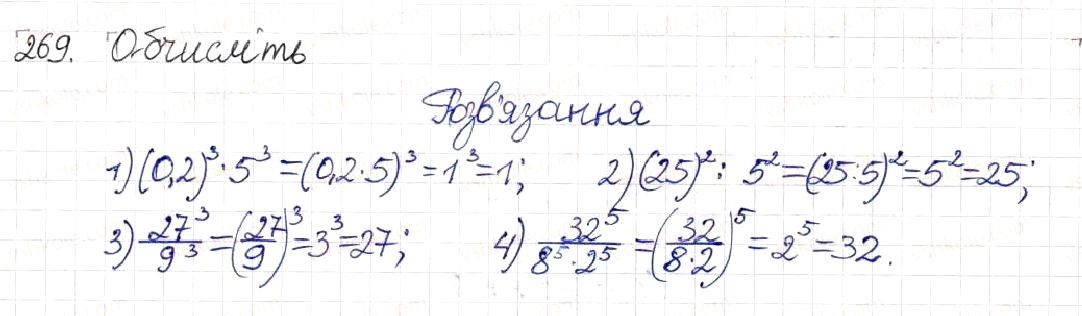 269. Обчисліть
Розв'язання
1) (0,2)³·5³ = (0,2·5)³ = 1³ = 1; 2) (25)² : 5² = (25:5)² = 5² = 25;
3) 27³/9³ = (27/9)³ = 3³ = 27; 4) 32⁵/8⁵·2⁵ = (32/8·2)⁵ = 2⁵ = 32.